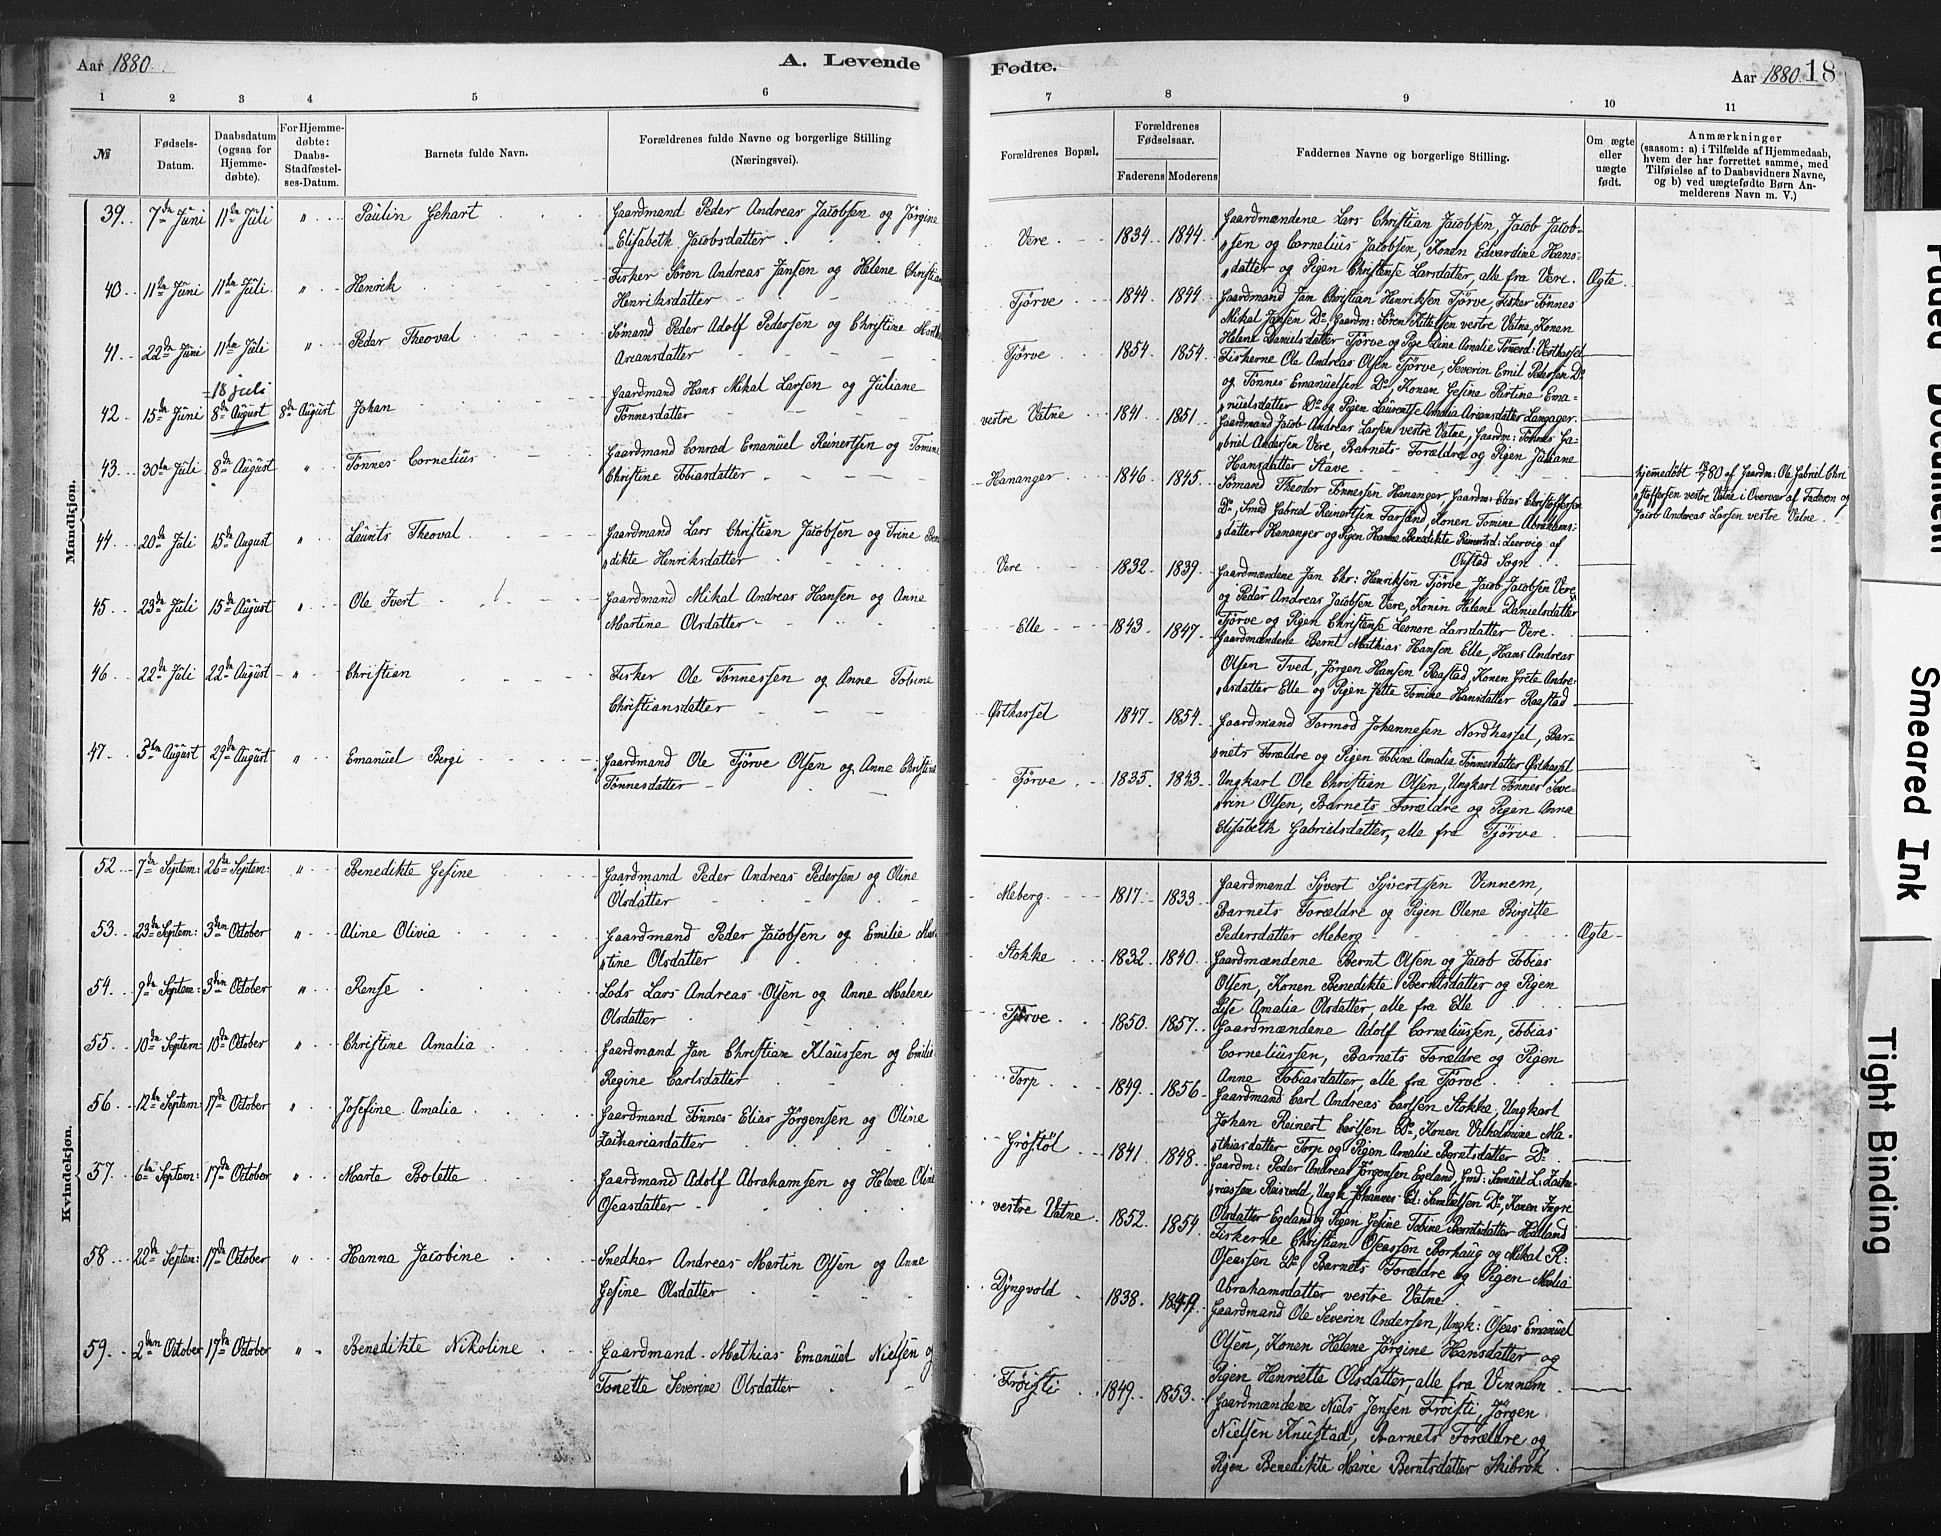 Aar 1880.
A. Levende
1 2 3 4 5 6
№
Fødsels-Datum.
Daabsdatum (ogsaa for Hjemme-døbte).
For Hjemme-døbte: Daabs-Stadfæstel-ses-Datum.
Barnets fulde Navn.
Forældrenes fulde Navne og borgerlige Stilling (Næringsvei).
Mandkjøn.
39. 7de Juni 11te Juli " Paulin Gehart Gaardmand Peder Andreas Jacobsen og Jørgine
Elisabeth Jacobsdatter
40 11te Juni 11te Juli " Henrik Fisker Sören Andreas Jansen og Helene Christian
Henriksdatter
41 22de Juni 11te Juli " Peder Theoval Sömand Peder Adolf Pedersen og Christine
Ariansdatter
18 juli
42. 15de Juni 8de August 8de August Johan Gaardmand Hans Mikal Larsen og Juliane
Tönnesdatter
43. 30te Juli 8de August " Tönnes Cornelius Gaardmand Conrad Emanuel Reinertsen og Tomine
Christine Tobiasdatter
44 20de Juli 15de August " Laurits Theoval Gaardmand Lars Christian Jacobsen og Trine Bene
dikte Henriksdatter
45. 23de Juli 15de August " Ole Ivert Gaardmand Mikal Andreas Hansen og Anne
Martine Olsdatter
46 22de Juli 22de August " Christian Fisker Ole Tönnessen og Anne Tobine
Christiansdatter
47. 5te August 29de August " Emanuel Bergi Gaardmand Ole Tjörve Olsen og Anne Christine
Tönnesdatter
Kvindekjøn.
52 7de Septem: 26de Septem: " Benedikte Gesine Gaardmand Peder Andreas Pedersen og Oline
Olsdatter
53. 23de Septem: 3den October " Aline Olivia Gaardmand Peder Jacobsen og Emilie
stine Olsdatter
54. 9de Septem: 3den October " Rense Lods Lars Andreas Olsen og Anne Malene
Olsdatter
55. 10de Septem: 10de October " Christine Amalia Gaardmand Jan Christian Klaussen og Emilie
Regine Carlsdatter
56 12te Septem: 17de October " Josefine Amalia Gaardmand Tönnes Elias Jörgensen og Oline
Zachariasdatter
57. 6te Septem: 17de October " Marte Bolette Gaardmand Adolf Abrahamsen og Helene
Oseasdatter
58 22de Septem: 17de October " Hanna Jacobine Snedker Andreas Martin Olsen og Anne
Gesine Olsdatter
59. 2den October 17de October " Benedikte Nikoline Gaardmand Mathias Emanuel Nielsen og
Tonette Severine Olsdatter
Fødte.
Aar 1880. 18
7 8 9 10 11
Forældrenes Bopæl.
Forældrenes Fødselsaar.
Faderens Moderens
Faddernes Navne og borgerlige Stilling.
Om ægte eller uægte født.
Anmærkninger
(saasom: a) i Tilfælde af Hjemmedaab,
hvem der har forrettet samme, med
Tilføielse af to Daabsvidners Navne,
og b) ved uægtefødte Børn An-
melderens Navn m. V.)
Vere 1834 1844 Gaardmændene Lars Christian Jacobsen, Jacob Jacob-
sen og Cornelius Jacobsen, Konen Edvardine Hans-
datter og Pigen Christense Larsdatter, alle fra Vere. Ægte.
Tjörve 1844 1844 Gaardmand Jan Christian Henriksen Tjörve, Fisker Tönnes
Mikal Jansen Do, Gaardm: Sören Kittelsen vestre Vatne, Konen
Helene Danielsdatter Tjörve og Pige Line Amalie Tönnesd: Vesthassel
Tjörve 1854 1854 Fiskerne Ole Andreas Olsen Tjörve, Severin Emil Pedersen Do
og Tönnes Emanuelsen Do, Konen Gesine Bertine Ema-
nuelsdatter Do og Pigen Laurentse Amalia Ariansdatter Langager.
vestre Vatne 1841 1851 Gaardmand Jacob Andreas Larsen vestre Vatne, Gaardm: Tönnes Ga-
briel Andersen Vere, Barnets Forældre og Pigen Juliane
Hansdatter Stave
Hananger 1846 1845 Sömand Theodor Tönnessen Hananger, Gaardm: Elias Christoffersen
Do, Smed Gabriel Reinertsen Farsund, Konen Tomine Abrahams-
datter Hananger og Pigen Hanne Benedikte Reinertsd: Leervig af
Oufstad Sogn
hjemmedöbt 18/7 80 af Gaardm: Ole Gabriel Chri
stoffersen vestre Vatne i Overvær af Faderen og
Jacob Andreas Larsen vestre Vatne.
Vere 1832 1839 Gaardmændene Jan Chr: Henriksen Tjörve, Jacob Jacobsen Vere
og Peder Andreas Jacobsen Vere, Konen Helene Danielsdatter
Tjörve og Pigen Christense Leonore Larsdatter Vere.
Elle 1843 1847 Gaardmændene Bernt Mathias Hansen Elle, Hans Andreas
Olsen Tved, Jörgen Hansen Raastad, Konen Grete Andre-
asdatter Elle og Pigen Jette Tomine Hansdatter Raastad
Østhassel 1847 1854 Gaardmand Tormod Johannesen Nordhassel, Bar-
nets Forældre og Pigen Tobine Amalia Tönnesdatter Østhassel
Tjörve 1835 1843 Ungkarl Ole Christian Olsen, Ungkarl Tönnes Seve-
rin Olsen, Barnets Forældre og Pigen Anna
Elisabeth Gabrielsdatter, alle fra Tjörve.
Meberg 1817 1833 Gaardmand Syvert Syvertsen Vennem,
Barnets Forældre og Pigen Olene Birgitte
Pedersdatter Meberg Ægte
Stokke 1832 1840 Gaardmændene Bernt Olsen og Jacob Tobias
Olsen, Konen Benedikte Berntsdatter og Pigen
Lise Amalia Olsdatter, alle fra Elle
Tjörve 1850 1857 Gaardmændene Adolf Corneliussen, Tobias
Corneliussen, Barnets Forældre og Pigen
Anne Tobiasdatter, alle fra Tjörve
Torp 1849 1856 Gaardmand Carl Andreas Carlsen Stokke, Ungkarl
Johan Reinert Carlsen Do, Konen Vilhelmine Ma-
thiasdatter Torp og Pigen Amalie Berntsdatter Do
Gröstöl 1841 1848 Gaardm: Peder Andreas Jörgensen Egeland, Gmd: Samuel L. Zacha-
riassen Reisvold, Ungk. Johannes Ed: Samuelsen Do, Konen Ingre
Olsdatter Egeland og Pigen Gesine Tobine Berntsdatter Hølland
vestre Vatne 1852 1854 Fiskerne Christian Oseassen Borhaug og Mikal R:
Oseassen Do, Barnets Forældre og Pigen Malia
Abrahamsdatter vestre Vatne
Dyngvold 1838 1849 Gaardmand Ole Severin Andersen, Ungk: Oseas Emanuel
Olsen, Konen Helene Jörgine Hansdatter og
Pigen Henriette Olsdatter, alle fra Vennem
Fröisti 1849 1853 Gaardmændene Niels Jensen Fröisti, Jörgen
Nielsen Knustad, Barnets Forældre og
Pigen Benedikte Marie Berntsdatter Skibrok
Faded Document
Smeared Ink
Tight Binding